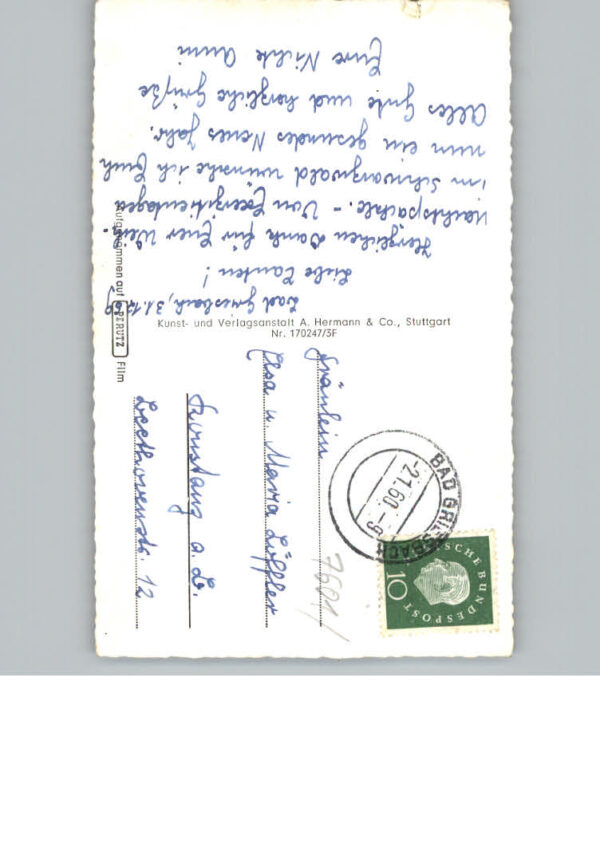 Bad Griesbach, 31.12.59
Liebe Tanten!
Herzlichen Dank für Euer Weih-
nachtspäckle. - Von Exerzitientagen
im Schwarzwald wünsche ich Euch
nun ein gesundes Neues Jahr.
Alles Gute und herzliche Grüße
Eure Nichte Anni
Aufgenommen auf PERUTZ Film
Kunst- und Verlagsanstalt A. Hermann & Co., Stuttgart
Nr. 170247/3F
Fräulein
Elsa u. Maria Löffler
Konstanz a. B.
Beethovenstr. 12
7601/
BAD GRIESBACH
-2.1.60.-9
DEUTSCHE BUNDESPOST
10